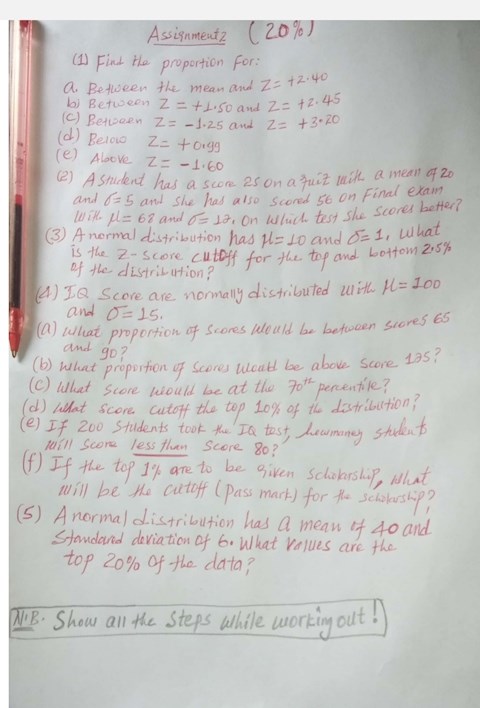 Assignment2 (20%)
(1) Find the proportion for:
a. Between the mean and Z= +2.40
(b) Between Z = +1.50 and Z= +2.45
(c) Between Z= -1.25 and Z= +3.20
(d) Below Z= +0.99
(e) Above Z= -1.60
(2) A student has a score 25 on a quiz with a mean of 20
and σ=5 and she has also scored 56 on Final exam
with μ= 68 and σ= 12. On which test she scores better?
(3) A normal distribution has μ=10 and σ=1, What
is the Z-score cutoff for the top and bottom 2.5%
of the distribution?
(4) IQ Score are normally distributed with μ=100
and σ=15.
(a) What proportion of scores would be between scores 65
and 90?
(b) What proportion of scores would be above score 125?
(c) What score would be at the 70th percentile?
(d) What score cutoff the top 10% of the distribution?
(e) If 200 students took the IQ test, howmoney students
will score less than score 80?
(f) If the top 1% are to be given scholarship, what
will be the cutoff (pass mark) for the scholarship?
(5) A normal distribution has a mean of 40 and
standared deviation of 6. What values are the
top 20% of the data?
N.B. Show all the steps while working out!